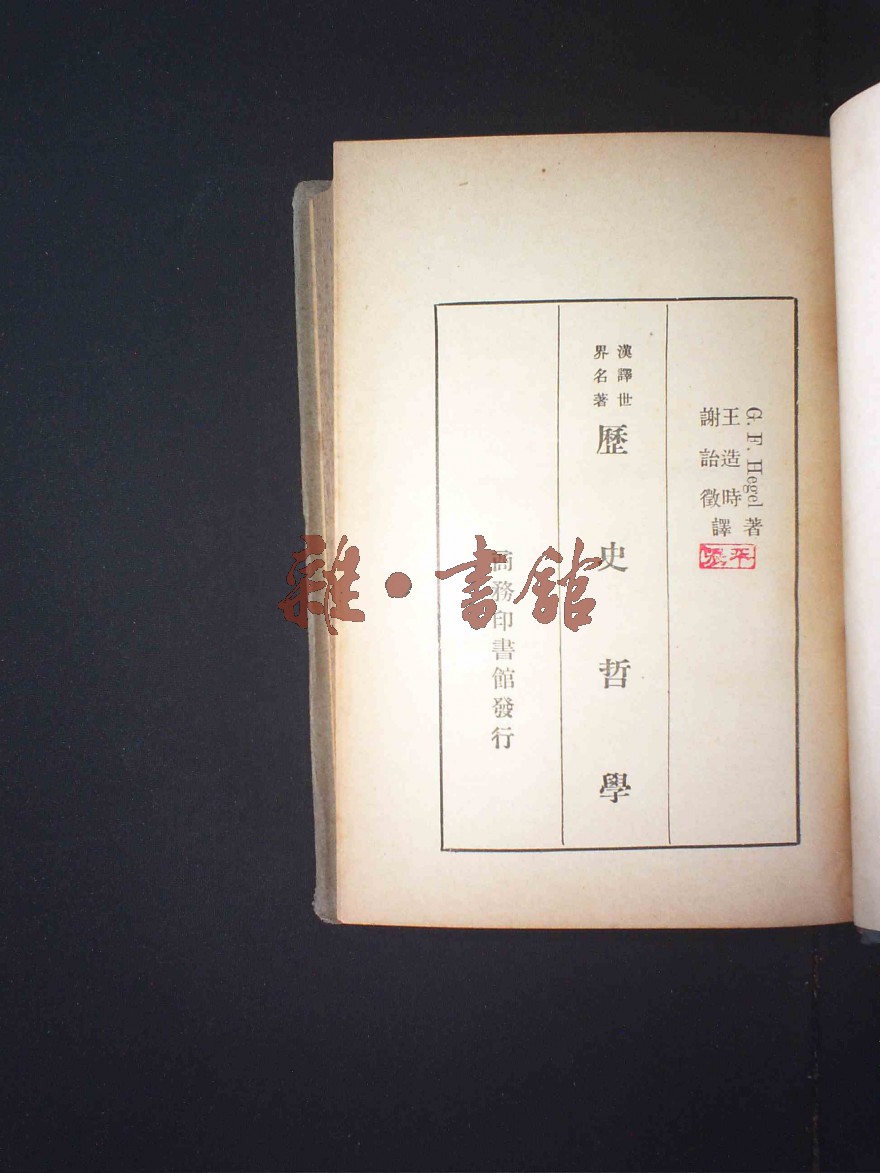 G. F. Hegel 著
王造時
謝詒徵
譯
漢譯世
界名著
歷史哲學
商務印書館發行
雜·書館